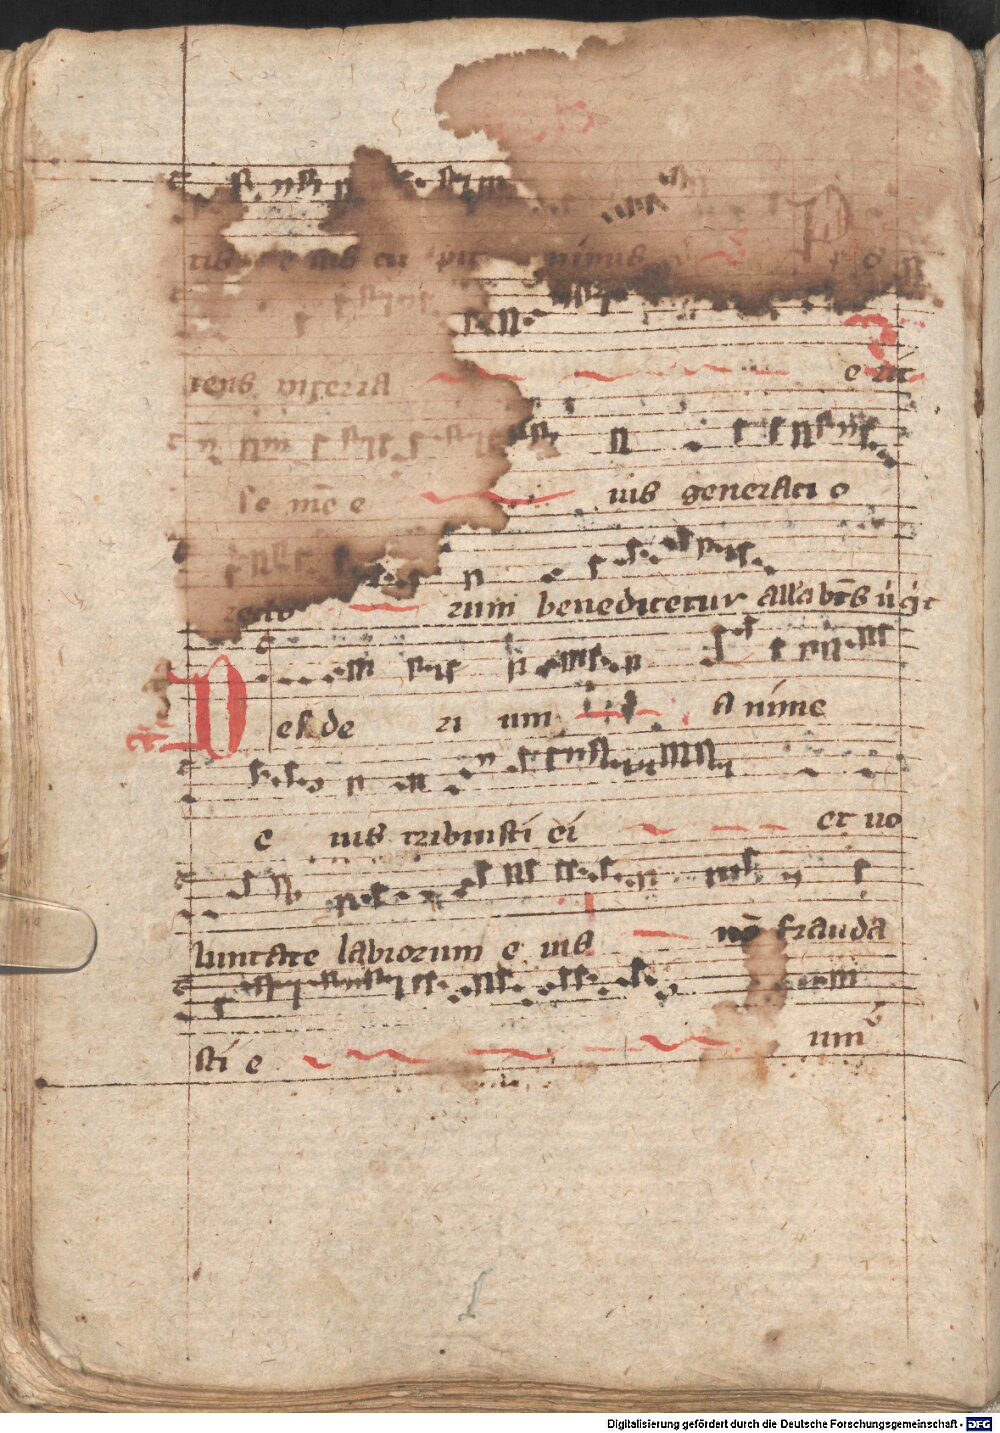 tis e ius cu pit nimis P o
tens in terra e rit
se me e ius generati o
recto rum benedicetur alla bts ũ q̇ t
Desi de ri um a nime
e ius tribuisti ei et uo
luntate labiorum e ius nō frauda
sti e um
Digitalisierung gefördert durch die Deutsche Forschungsgemeinschaft - DFG